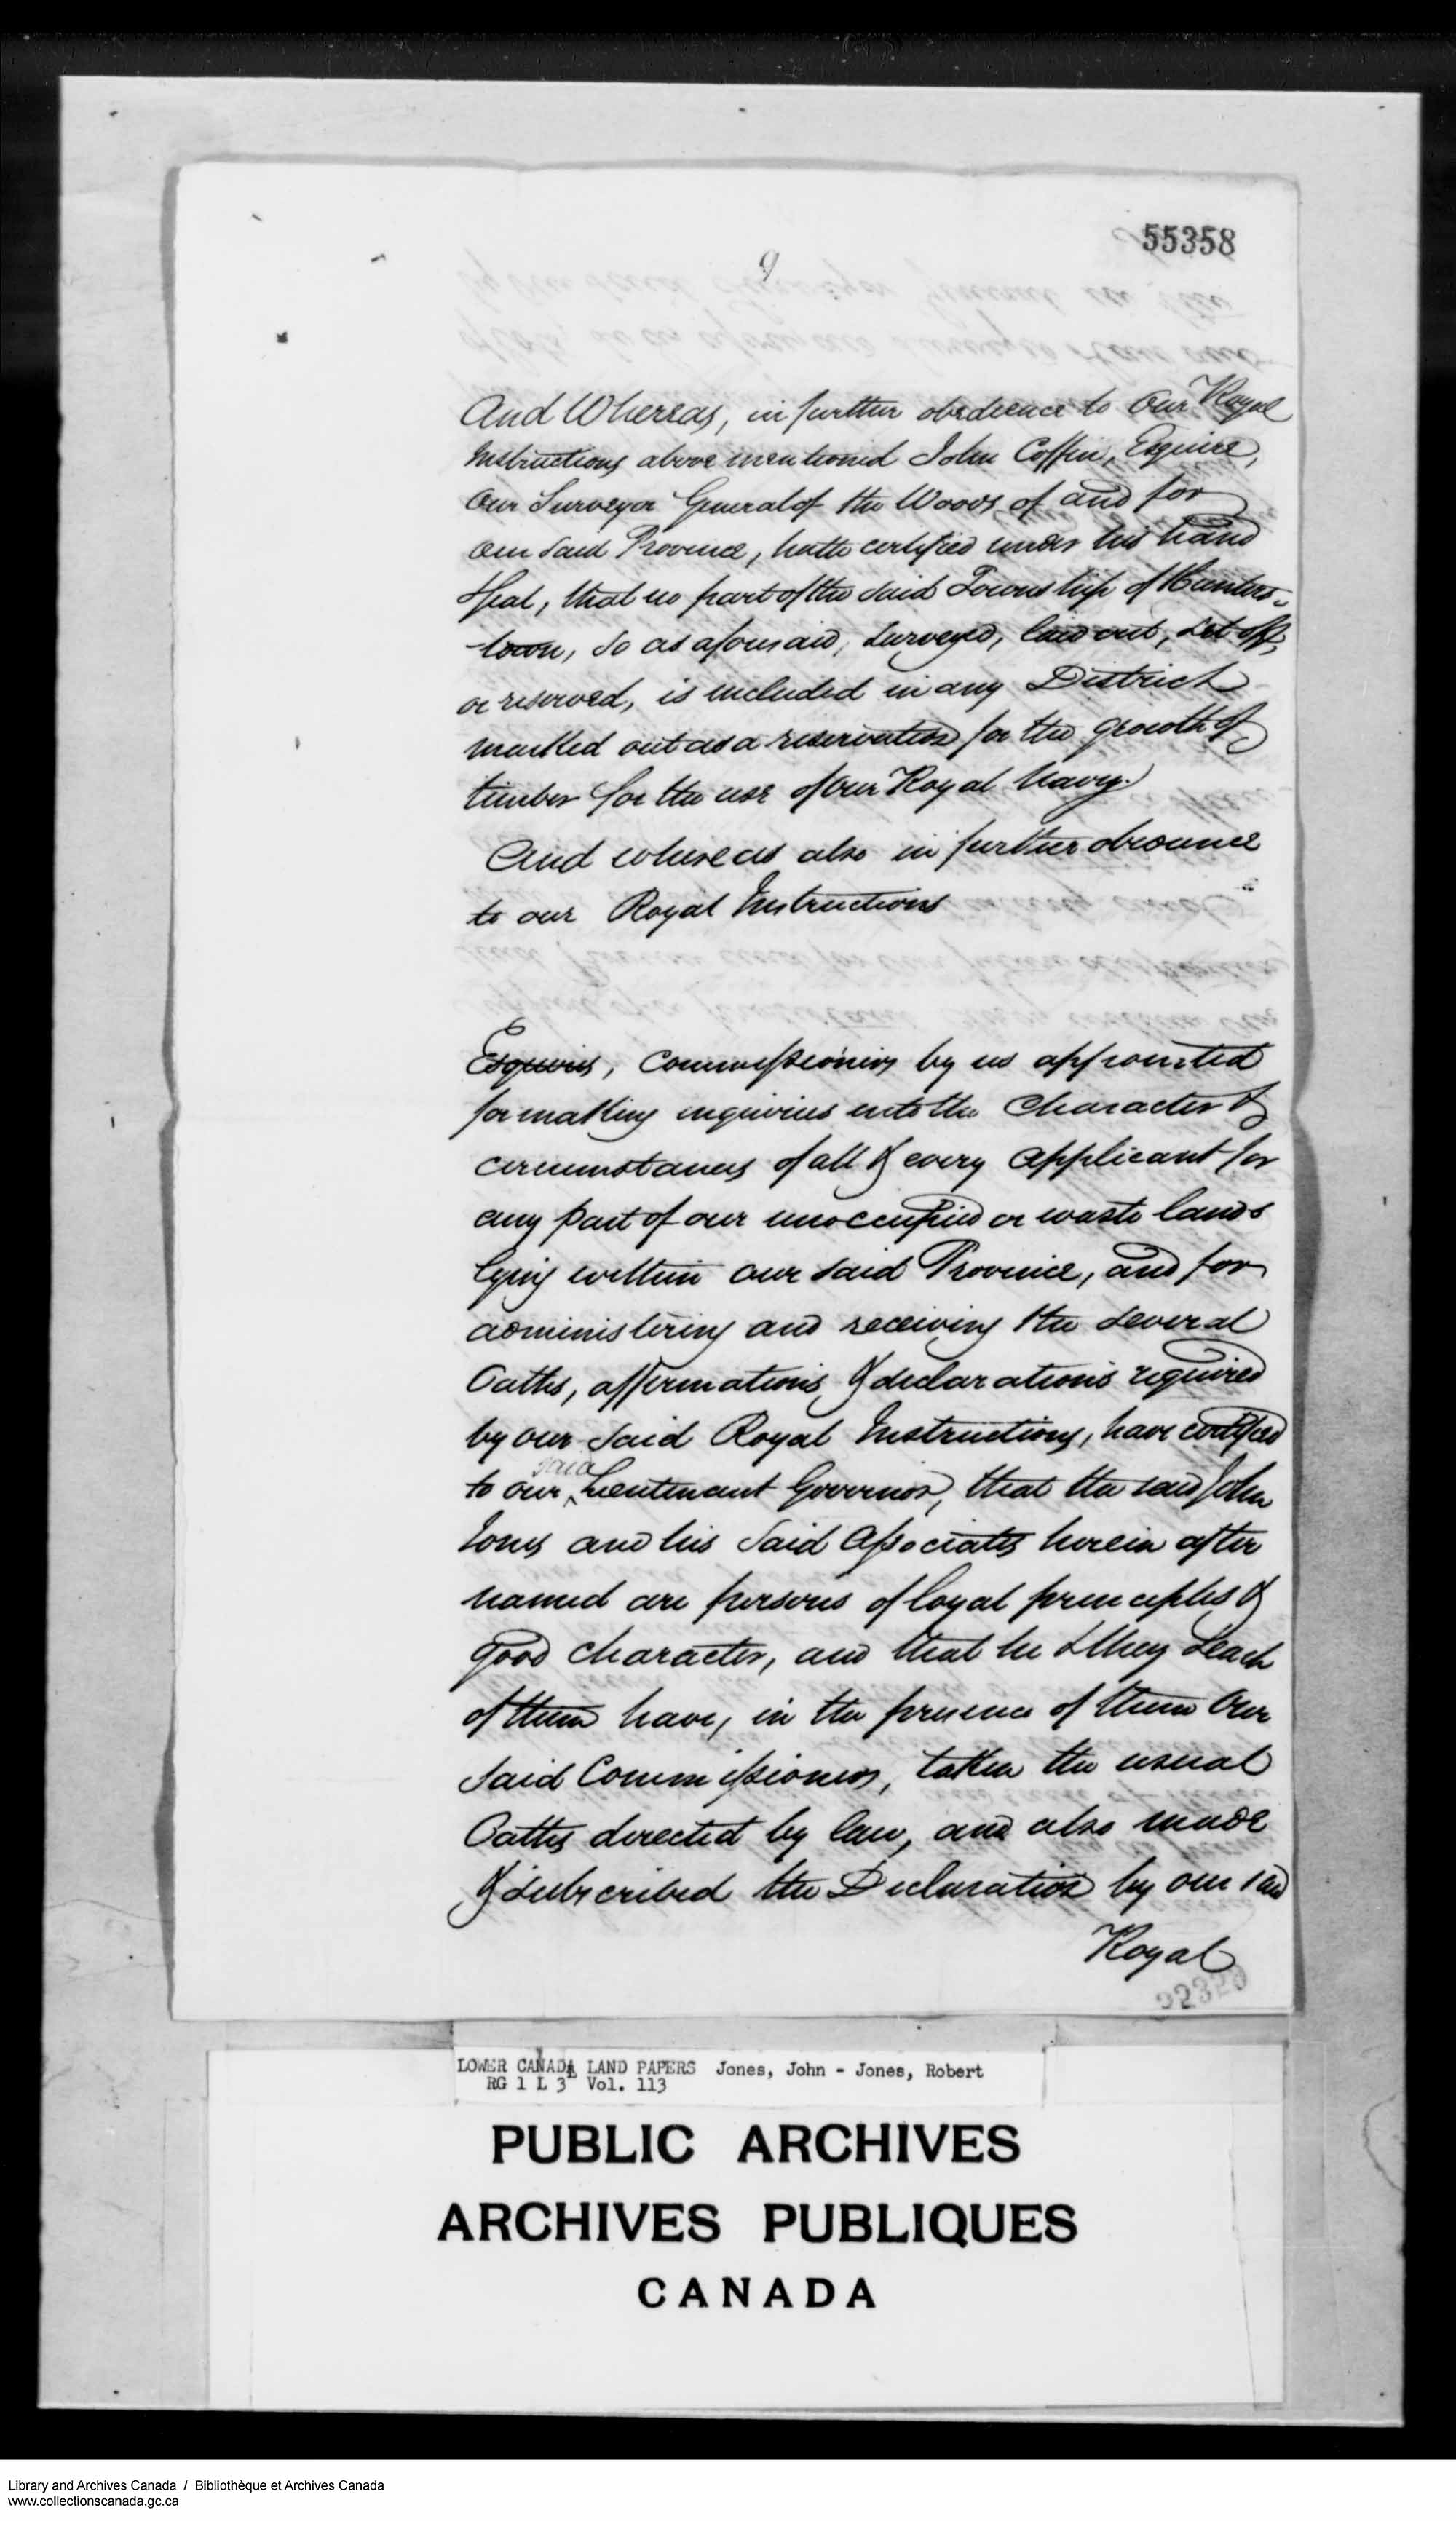 55358
9
And Whereas, in further obedience to Our Royal
Instructions above mentioned John Coffin, Esquire,
Our Surveyor General of the Woods of and for
our said Province, hath certified under his hand
& seal, that no part of the said Township of Hunters-
-town, so as aforesaid, surveyed, laid out, set off,
or reserved, is included in any District
marked out as a reservation for the growth of
timber for the use of our Royal Navy.
And whereas also in further obedience
to our Royal Instructions
Esquires, Commissioners by us appointed
for making inquiries into the Character &
circumstances of all & every applicant for
any part of our unoccupied or waste lands
lying within our said Province, and for
administering and receiving the several
Oaths, affirmations, & declarations required
by our said Royal Instructions, have certified
to our said Lieutenant Governor, that the said John
Jones and his said Associates herein after
named are persons of loyal principles &
good character, and that he & they & each
of them have, in the presence of them Our
said Commissioners, taken the usual
Oaths directed by law, and also made
& subscribed the Declaration by our said
Royal
LOWER CANADA LAND PAPERS Jones, John - Jones, Robert
RG 1 L 3 Vol. 113
PUBLIC ARCHIVES
ARCHIVES PUBLIQUES
CANADA
Library and Archives Canada / Bibliothèque et Archives Canada
www.collectionscanada.gc.ca